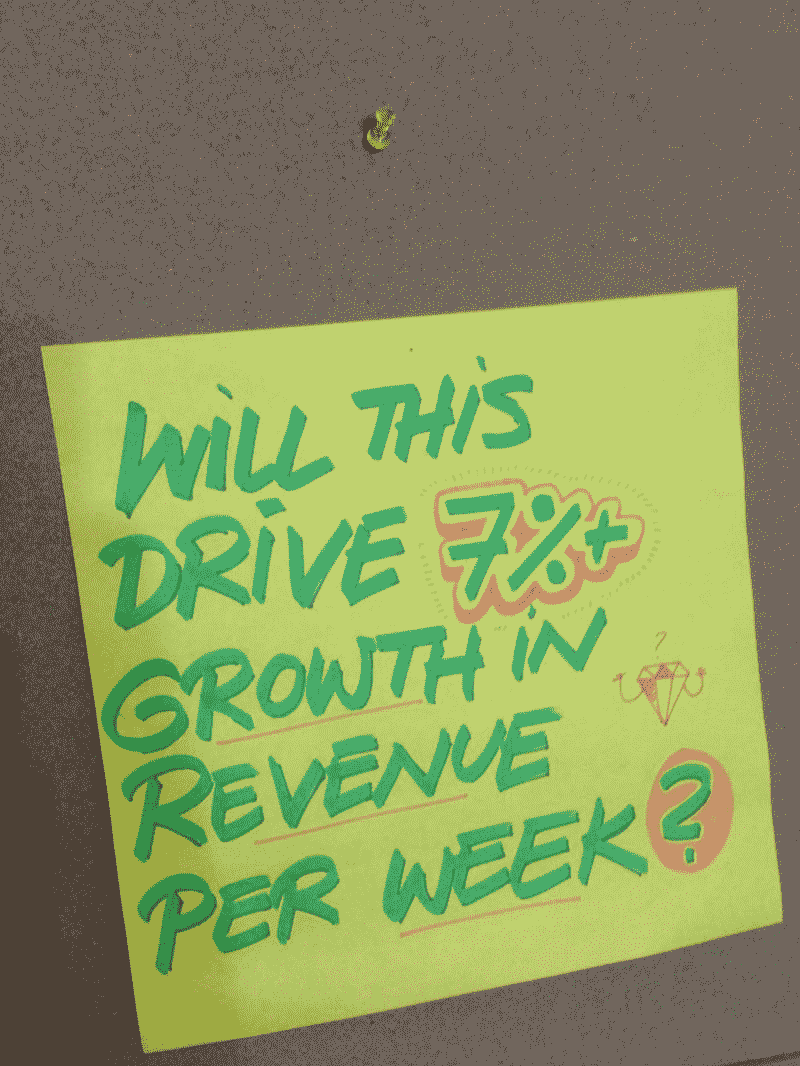 WiLL THiS
DRiVE 7%+
GROWTH iN
REVENUE
PER WEEK?
?